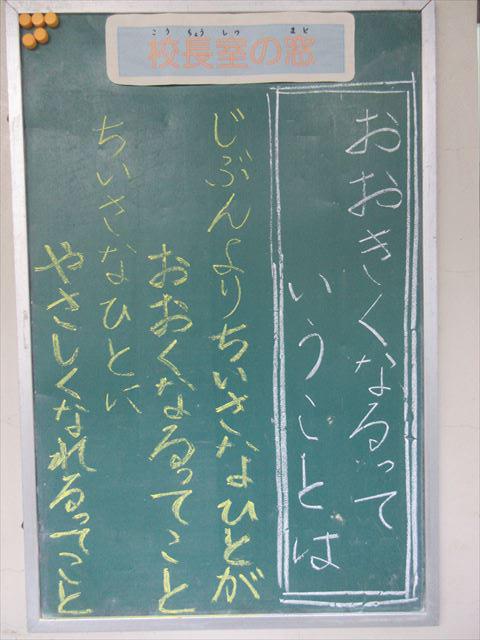 こうちょうしつ まど
校長室の窓
おおきくなるって
いうことは
じぶんよりちいさなひとが
おおくなるってこと
ちいさなひとに
やさしくなれるってこと